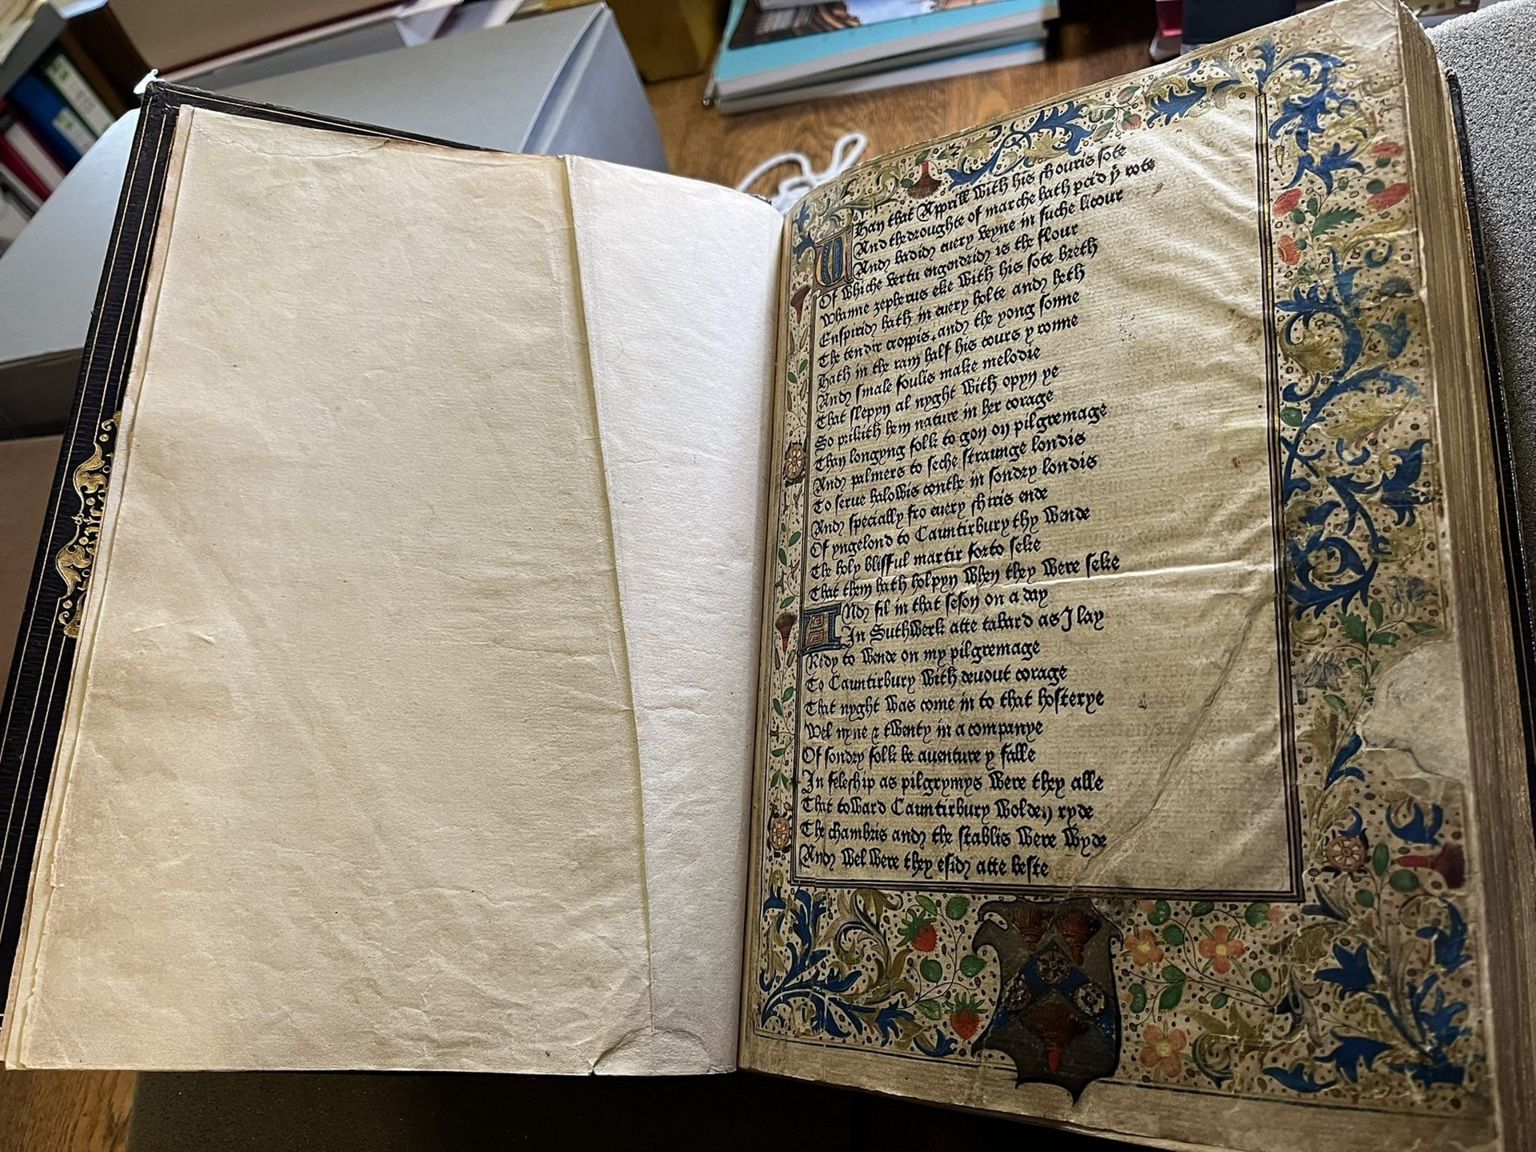 Whan that Apprill with his shouris sote
And the droughte of marche hath pcid ẏ rote
And badid euery veyne in suche licour
Of whiche vertu engendrid is the flour
Whanne zepherus eke with his sote breth
Enspirid hath in euery holte and heth
The tendir croppis, and the yong sonne
Hath in the ram half his cours y ronne
And smale foulis make melodie
That slepyn al nyght with opyn ye
So prikith hem nature in her corage
Than longyng folk to gon on pilgremage
And palmers to seche straunge londis
To serue halowis couthe in sondry londis
And specially fro euery shiris ende
Of yngelond to Cauntirbury thy wende
The holy blisful martir forto seke
That them hath holpyn when they were seke
And fil in that seson on a day
In Suthwerk atte tabard as I lay
Redy to wende on my pilgremage
To Cauntirbury with deuout corage
That nyght was come in to that hosterye
Wel nyne & twenty in a companye
Of sondry folk be auenture y falle
In feleship as pilgrymys were they alle
That toward Cauntirbury wolden ryde
The chambris and the stablis were wyde
And wel were they esid atte beste